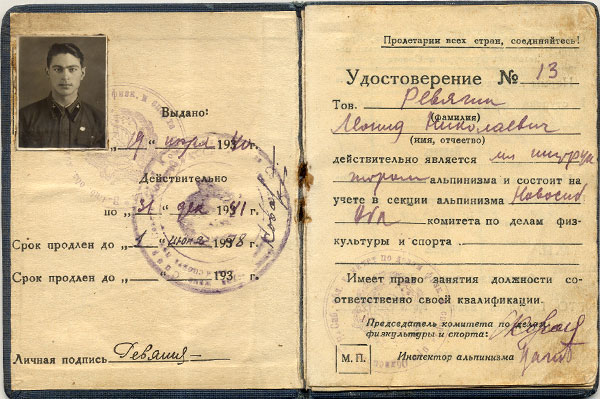 Выдано:
„19“ 1940г.
Действительно
по „31“ дек 1941 г.
Срок продлен до „1“ июня 1938 г.
Срок продлен до „ “ 193 г.
Личная подпись Ревягин
Пролетарии всех стран, соединяйтесь!
Удостоверение № 13
Тов. Ревягин
(фамилия)
Леонид Николаевич
(имя, отчество)
действительно является мл инструк
тором альпинизма и состоит на
учете в секции альпинизма Новосиб
Обл комитета по делам физ-
культуры и спорта
Имеет право занятия должности со-
ответственно своей квалификации.
Председатель комитета по делам
физкультуры и спорта:
М.П. Инспектор альпинизма